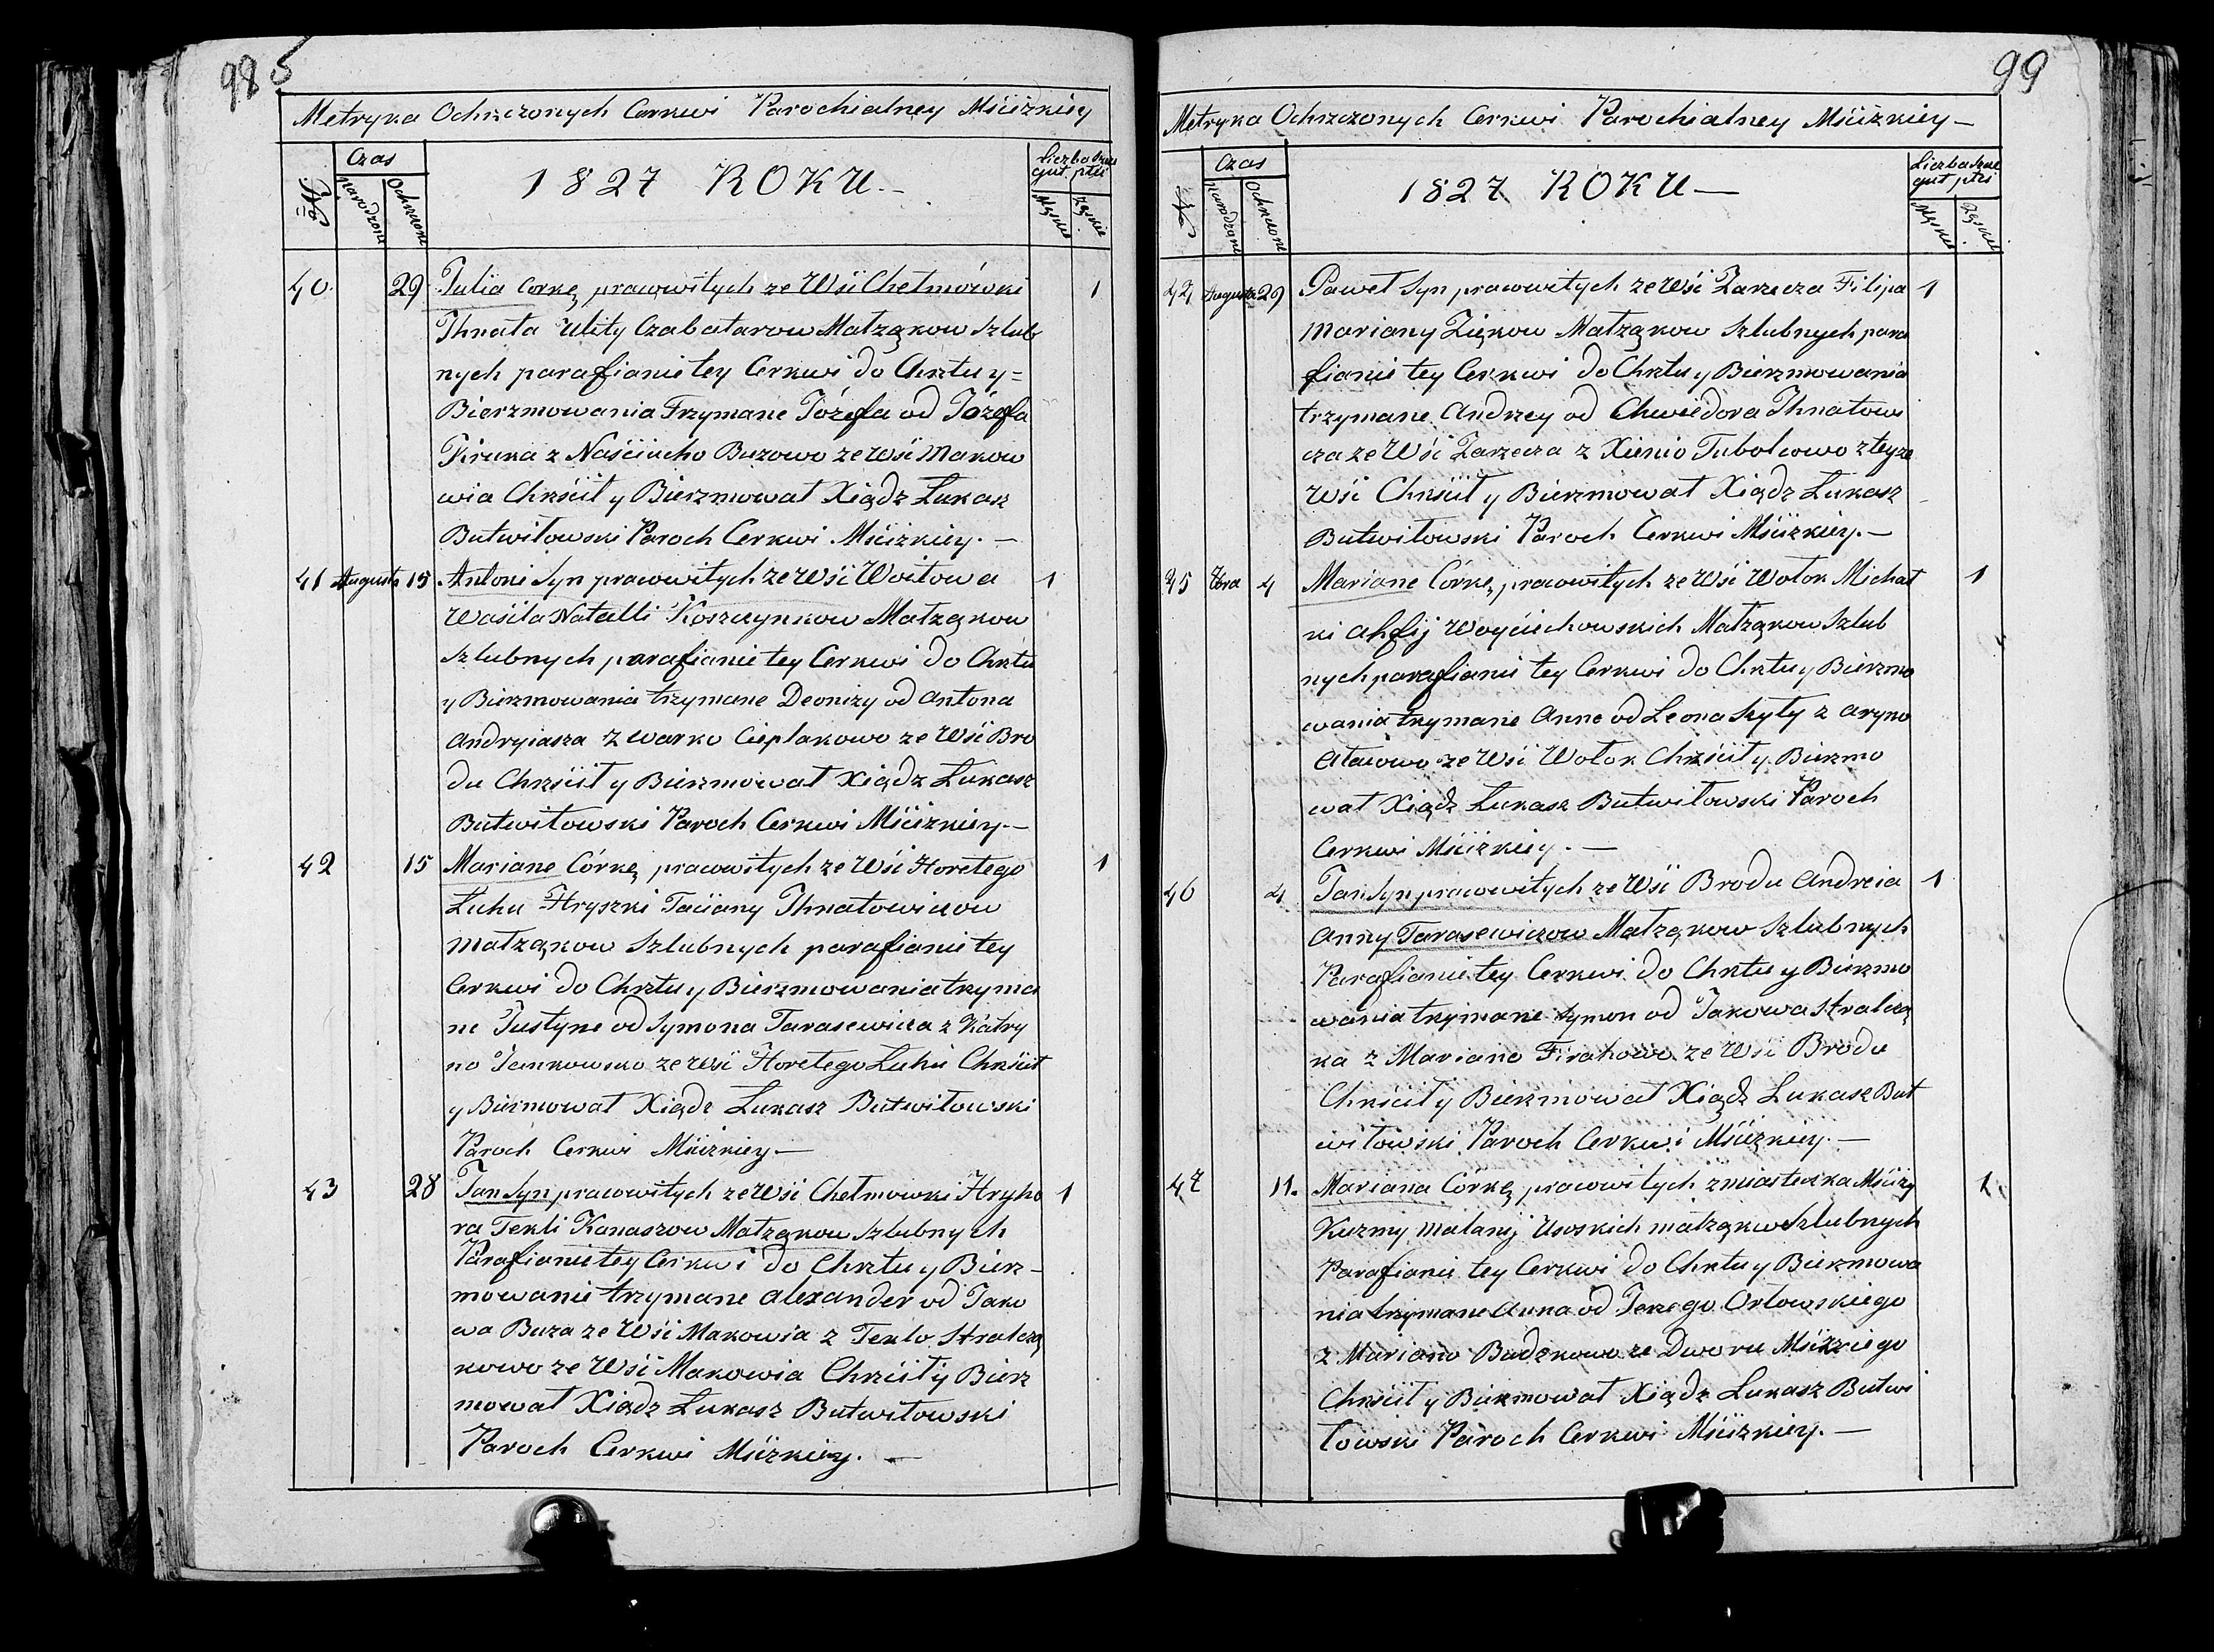 98
Metryka Ochrzczonych Cerkwi Parochialney Mściżkiey
No
Czas
narodzone
Ochrzczone
1827 ROKU.-
Liczba szcze
gut. płci
Męskiei
Żęskiei
40. 29 Julia Corkę pracowitych ze Wsi Chełmówki 1
Jhnata Ulity Czabatarow Małżąkow szlub
nych parafianie tey Cerkwi do Chrztu y=
Bierzmowania Trzymane Józefa od Józefa
Kruka z Naściucho Buzowo ze Wsi Makow
wia Chrzcił y Bierzmował Xiądz Łukasz
Butwiłowski Paroch Cerkwi Mściżkiey.-
41 Augusta 15 Antoni Syn pracowitych ze Wsi Woitowa 1
Waśila Natalli Koszczynkow Małżąkow
szlubnych parafianie tey Cerkwi do Chrztu
y Bierzmowania trzymane Deonizy od Antona
Andryiasza z Warko Cieplakowo ze Wsi Bro
du Chrzcił y Bierzmował Xiądz Łukasz
Butwiłowski Paroch Cerkwi Mściżkiey.-
42 15 Mariane Córkę pracowitych ze Wsi Horełego 1
Łuhu Hryszki Taciany Jhnatowiczow
Małżąkow szlubnych parafianie tey
Cerkwi do Chrztu y Bierzmowania trzyma
ne Justyne od Symona Tarasewicza z Katry
no Jankowsko ze Wsi Horełego Łuhu Chrzcił
y Bierzmował Xiądz Łukasz Butwiłowski
Paroch Cerkwi Mściżkiey-
43 28 Jan Syn pracowitych ze Wsi Chełmowki Hryho 1
ra Tekli Kanaszow Małżąkow szlubnych
Parafianie tey Cerkwi do Chrztu y Bierz-
mowanie trzymane Alexander od Jako
wa Buza ze Wsi Makowia z Teklo Stralczą
kowo ze Wsi Makowia Chrzcił y Bierz
mował Xiądz Łukasz Butwiłowski
Paroch Cerkwi Mściżkiey.-
99
Metryka Ochrzczonych Cerkwi Parochialney Mściżkiey-
No
Czas
narodzone
Ochrzczone
1827 ROKU-
Liczba szcze
gut płci
Męskiei
Żęskiei
44 Augusta 29 Paweł Syn pracowitych ze Wsi Zarzecza Filipa 1
Mariany Ziękow Małżąkow szlubnych para
fianie tey Cerkwi do Chrztu y Bierzmowania
trzymane Andrzey od Chwiedora Jhnatowi
cza ze Wsi Zarzecza z Xienio Tubolcowo z teyże
Wśi Chrzcił y Bierzmował Xiądz Łukasz
Butwiłowski Paroch Cerkwi Mściżkiey.-
45 7bra 4 Mariane Córkę pracowitych ze Wsi Wołok Michał 1
ki Ahfij Woyciechowskich Małżąkow szlub
nych parafianie tey Cerkwi do Chrztu y Bierzmo
wania trzymane Anne od Leona Skyty z Aryno
ze Wsi Wołok Chrzcił y Bierzmo
wał Xiądz Łukasz Butwiłowski Paroch
Cerkwi Mściżkiey.-
46 4 Jan Syn pracowitych ze Wsi Brodu Andreia 1
Anny Tarasewiczow Małżąkow szlubnych
Parafianie tey Cerkwi do Chrztu y Bierzmo
wania trzymane Symon od Jakowa Stralczą
ka z Mariano Firahowo ze Wsi Brodu
Chrzcił y Bierzmował Xiądz Łukasz But
wiłowski Paroch Cerkwi Mściżkiey.-
47 11. Mariana Córkę pracowitych z miasteczka Mściży 1
Kuzmy Malanij Usoskich małżąkow szlubnych
Parafianie tey Cerkwi do Chrztu y Bierzmowa
nia trzymane Anna od Jerzego Orłowskiego
z Mariano Budzkowo ze Dworu Mściżkiego
Chrzcił y Bierzmował Xiądz Łukasz Butwi
łowski Paroch Cerkwi Mściżkiey.-